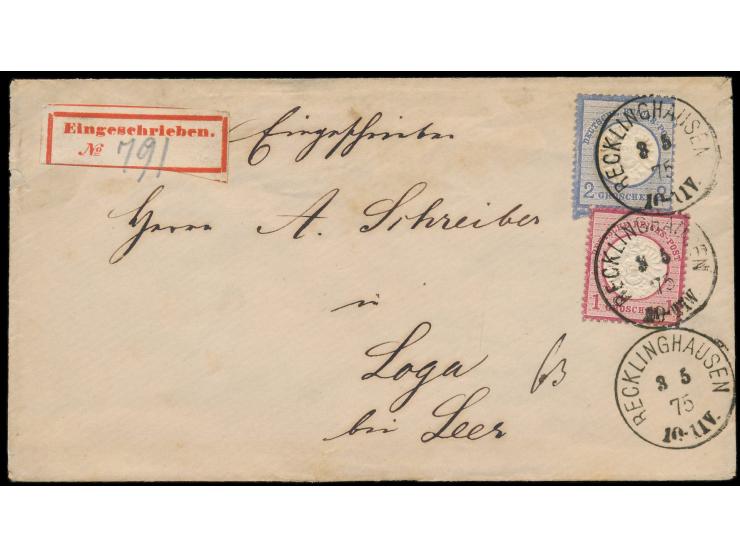 Eingeschrieben.
№ 791
Eingeschrieben
Herrn A. Schreiber
in
Loga
bei Leer
2 GROSCHEN 2
RECKLINGHAUSEN
3 5
75
10-11V.
1 GROSCHEN 1
RECKLINGHAUSEN
3 5
75
RECKLINGHAUSEN
3 5
75
10-11V.